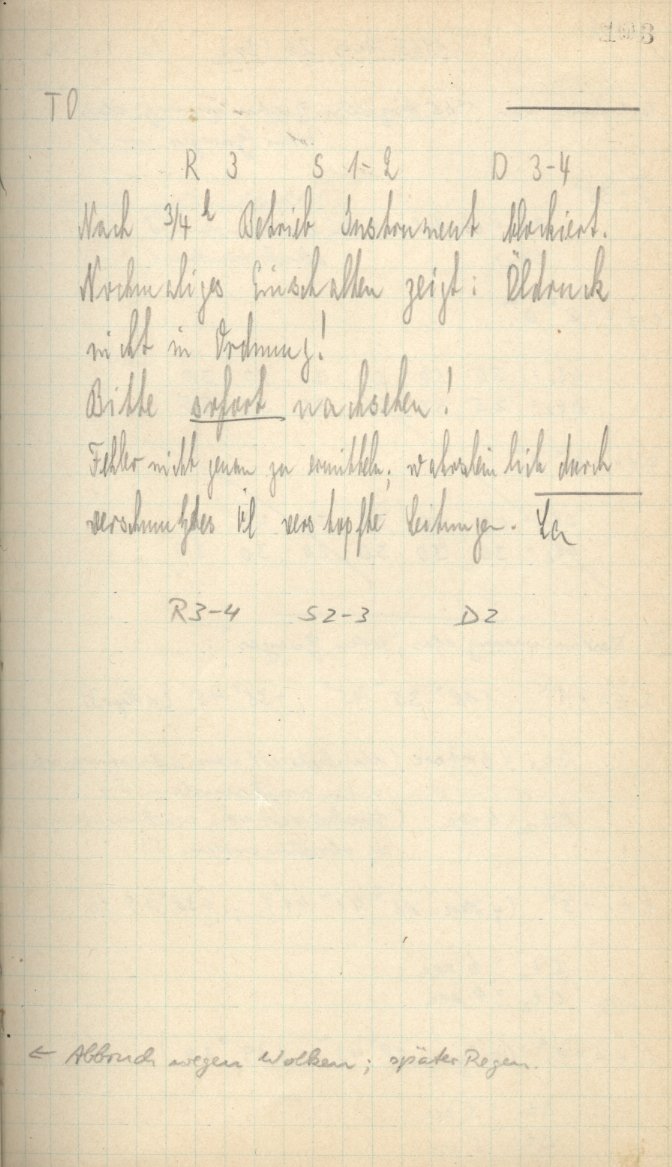 103
TO
R 3 S 1-2 D 3-4
Nach 3/4 h Betrieb Instrument blockiert.
Nochmaliges Einschalten zeigt: Öldruck
nicht in Ordnung!
Bitte sofort nachsehen!
Fehler nicht genau zu ermitteln; wahrscheinlich durch
verschmutztes Öl verstopfte Leitungen.
R3-4 S2-3 D2
← Abbruch wegen Wolken; später Regen.